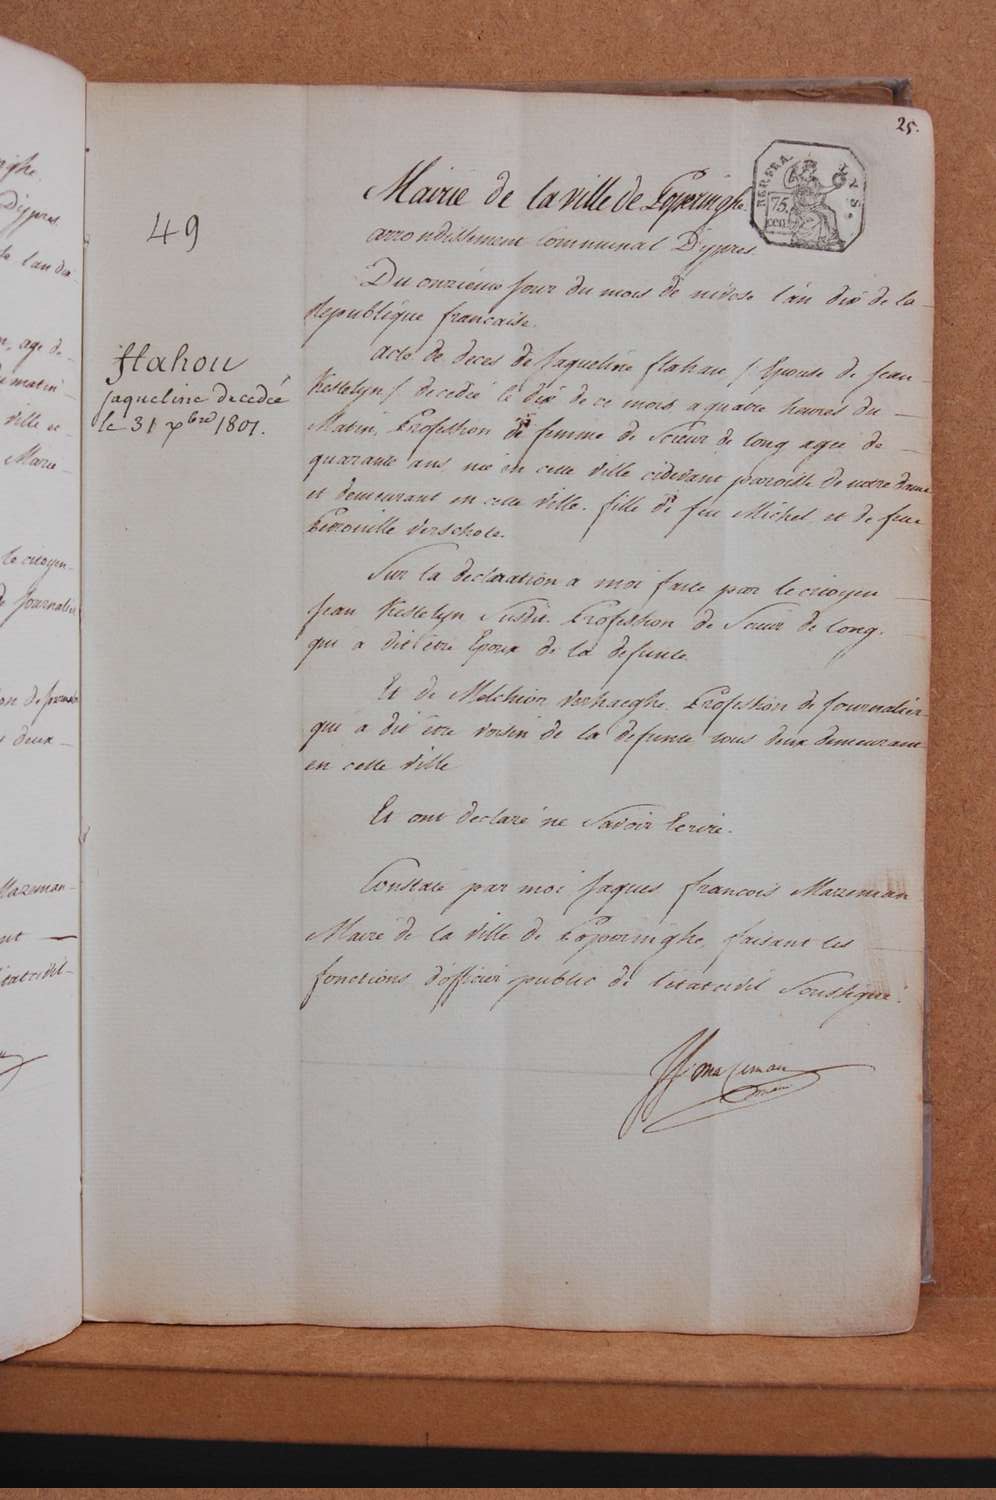 25.
REP. FRA.
75.
cen.
49
Mairie de la ville de Poperinghe
arrondissement Communal D'ypres.
Du onzieme jour du mois de nivose l'an dix de la
Republique francaise.
acte de deces de Jaqueline flahau / Epouse de Jean
Kestelyn / decedée le dix de ce mois a quatre heures du
Matin, Profession de femme de Scieur de long agee de
quarante ans née en cette ville cidevant paroisse de notre dame
et demeurant en cette ville. fille de feu Michel et de feue
Petronille Verschote.
flahou
jaqueline decedée
le 31 xbre 1801.
Sur la declaration a moi faite par le citoyen
Jean Kestelyn Susdit. Profession de Scieur de long.
qui a dit être Epoux de la defunte.
Et de Melchior Verhaeghe, Profession de Journalier
qui a dit être voisin de la defunte tous deux demeurant
en cette ville
Et ont declaré ne Savoir Ecrire.
Constaté par moi Jaques francois Mazeman
Maire de la ville de Poperinghe, faisant les
fonctions d'officier public de l'etat civil Soussigné.
JJ mazeman
maire
D'ypres.
l'an dix
age de
matin
ville et
Marie
le citoyen
de Journalier
deux
Mazeman
l'etat civil